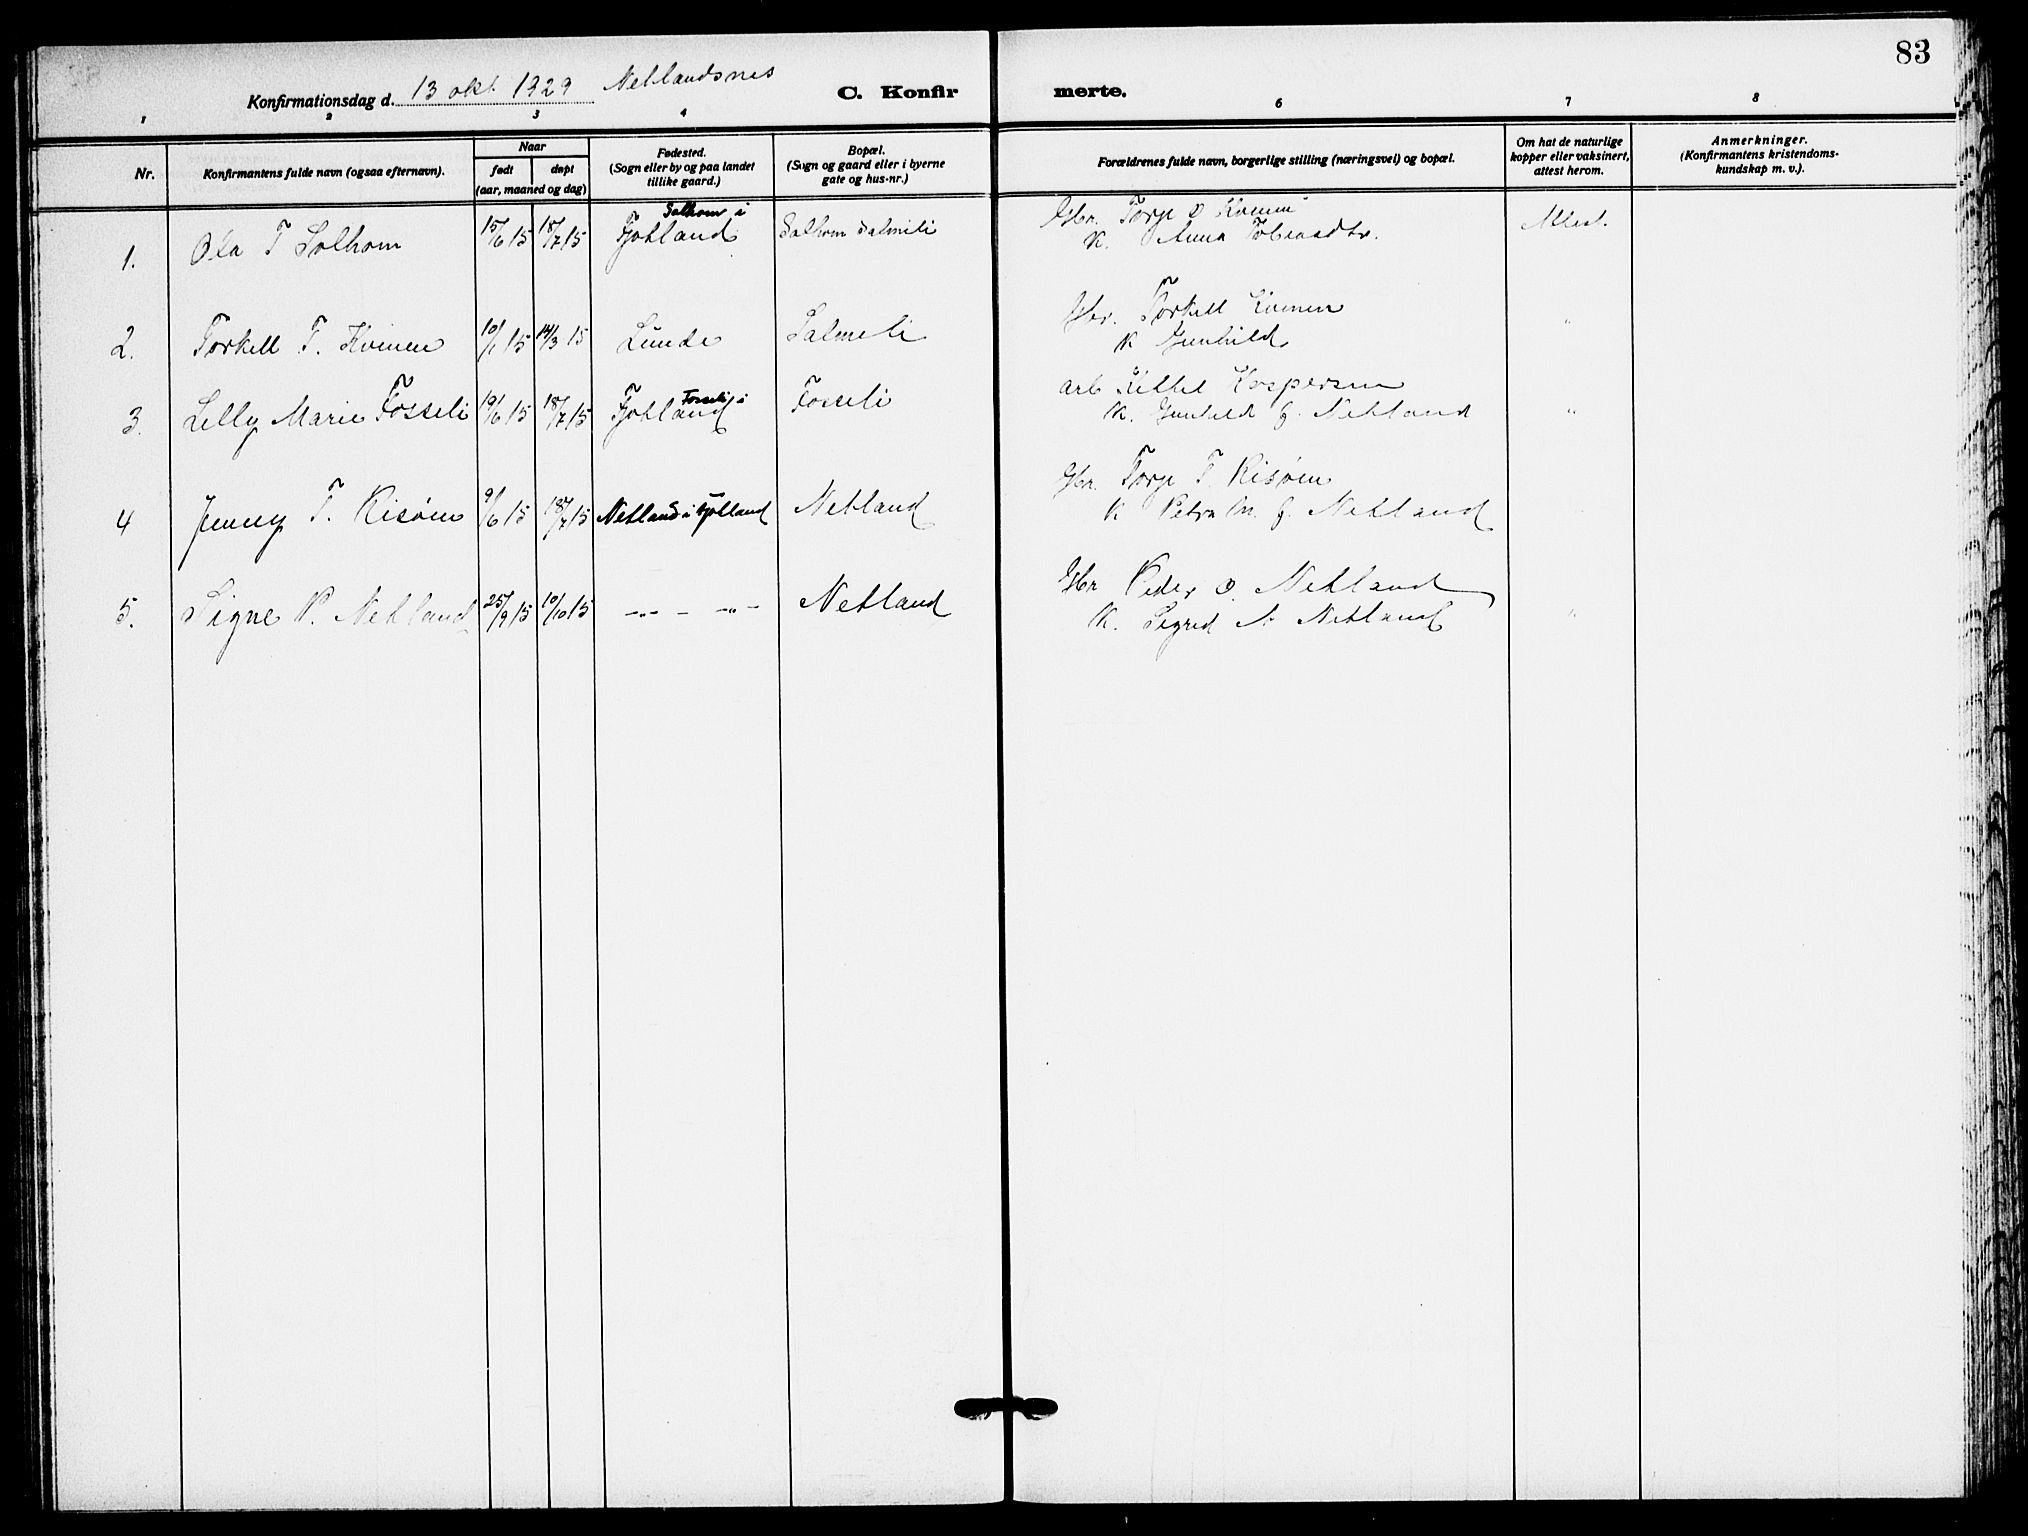 83
Konfirmationsdag d. 13 okt 1929 Netlandsnes C. Konfirmerte.
1 2 3 4 6 7 8
Nr.
Konfirmantens fulde navn (ogsaa efternavn).
Naar
født døpt
(aar, maaned og dag)
Fødested.
(Sogn eller by og paa landet
tillike gaard.)
Bopæl.
(Sogn og gaard eller i byerne
gate og hus-nr.)
Forældrenes fulde navn, borgerlige stilling (næringsvei) og bopæl.
Om hat de naturlige
kopper eller vaksinert,
attest herom.
Anmerkninger.
(Konfirmantens kristendoms-
kundskap m. v.).
Solhom i
1. Ola T Solhom 15/6 15 18/7 15 Fjotland Solhom Salmeli Gbr. Torje O Kvinen Attest.
K. Anna
2. Torkell T. Kvinen 10/1 15 14/3 15 Lunde Salmeli Gbr. Torkell Kvinen "
K Gunhild
Fosseli i
3. Lelly Marie Fosseli 19/6 15 18/7 15 Fjotland Fosseli arb Kittel Kaspersen
K. Gunhild f. Netland "
4 Jenny T. Risøen 9/6 15 18/7 15 Netland i Fjotland Netland Gbr. Torje T. Risøen
K Petra M. f. Netland
5. Signe P. Netland 25/9 15 10/10 15 -"- - -"- Netland Gbr Peder O. Netland
K. Sigrid A. Netland "